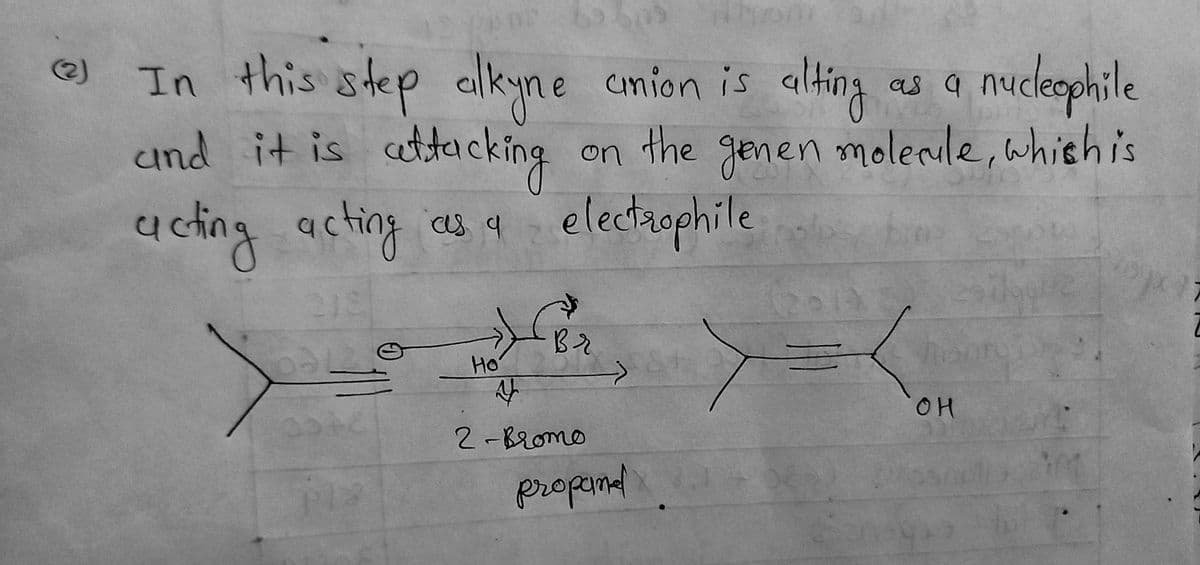 (2) In this step alkyne anion is alting as a nucleophile
and it is attacking on the genen molecule, which is
acting acting as a electrophile
Br
HO
OH
2-Bromo
propanol.